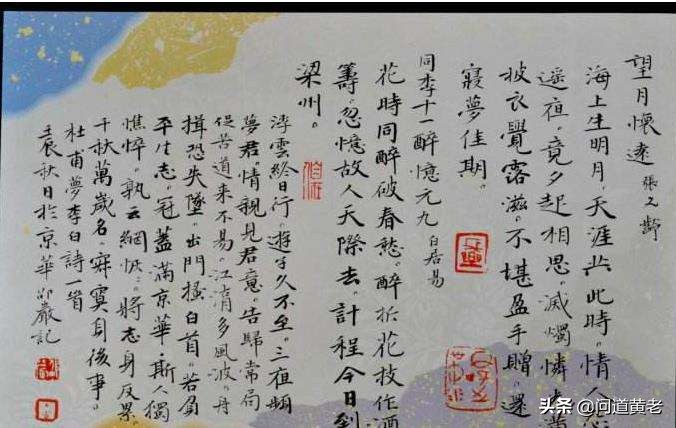 望月懷遠 張九齡
海上生明月。天涯共此時。情人怨
遥夜。竟夕起相思。滅燭憐光滿
披衣覺露滋。不堪盈手贈。還
寢夢佳期。
同李十一醉憶元九 白居易
花時同醉破春愁。醉折花枝作酒
籌。忽憶故人天際去。計程今日到
梁州。
浮雲終日行。遊子久不至。三夜頻
夢君。情親見君意。告歸常局
促苦道来不易。江湖多風波。舟
楫恐失墜。出門搔白首。若負
平生志。冠蓋滿京華。斯人獨
憔悴。孰云網恢。將志身反累。
千秋萬歲名。寂寞身後事。
杜甫夢李白詩一首
壬辰秋日於京華 邵巖記
头条 @问道黄老